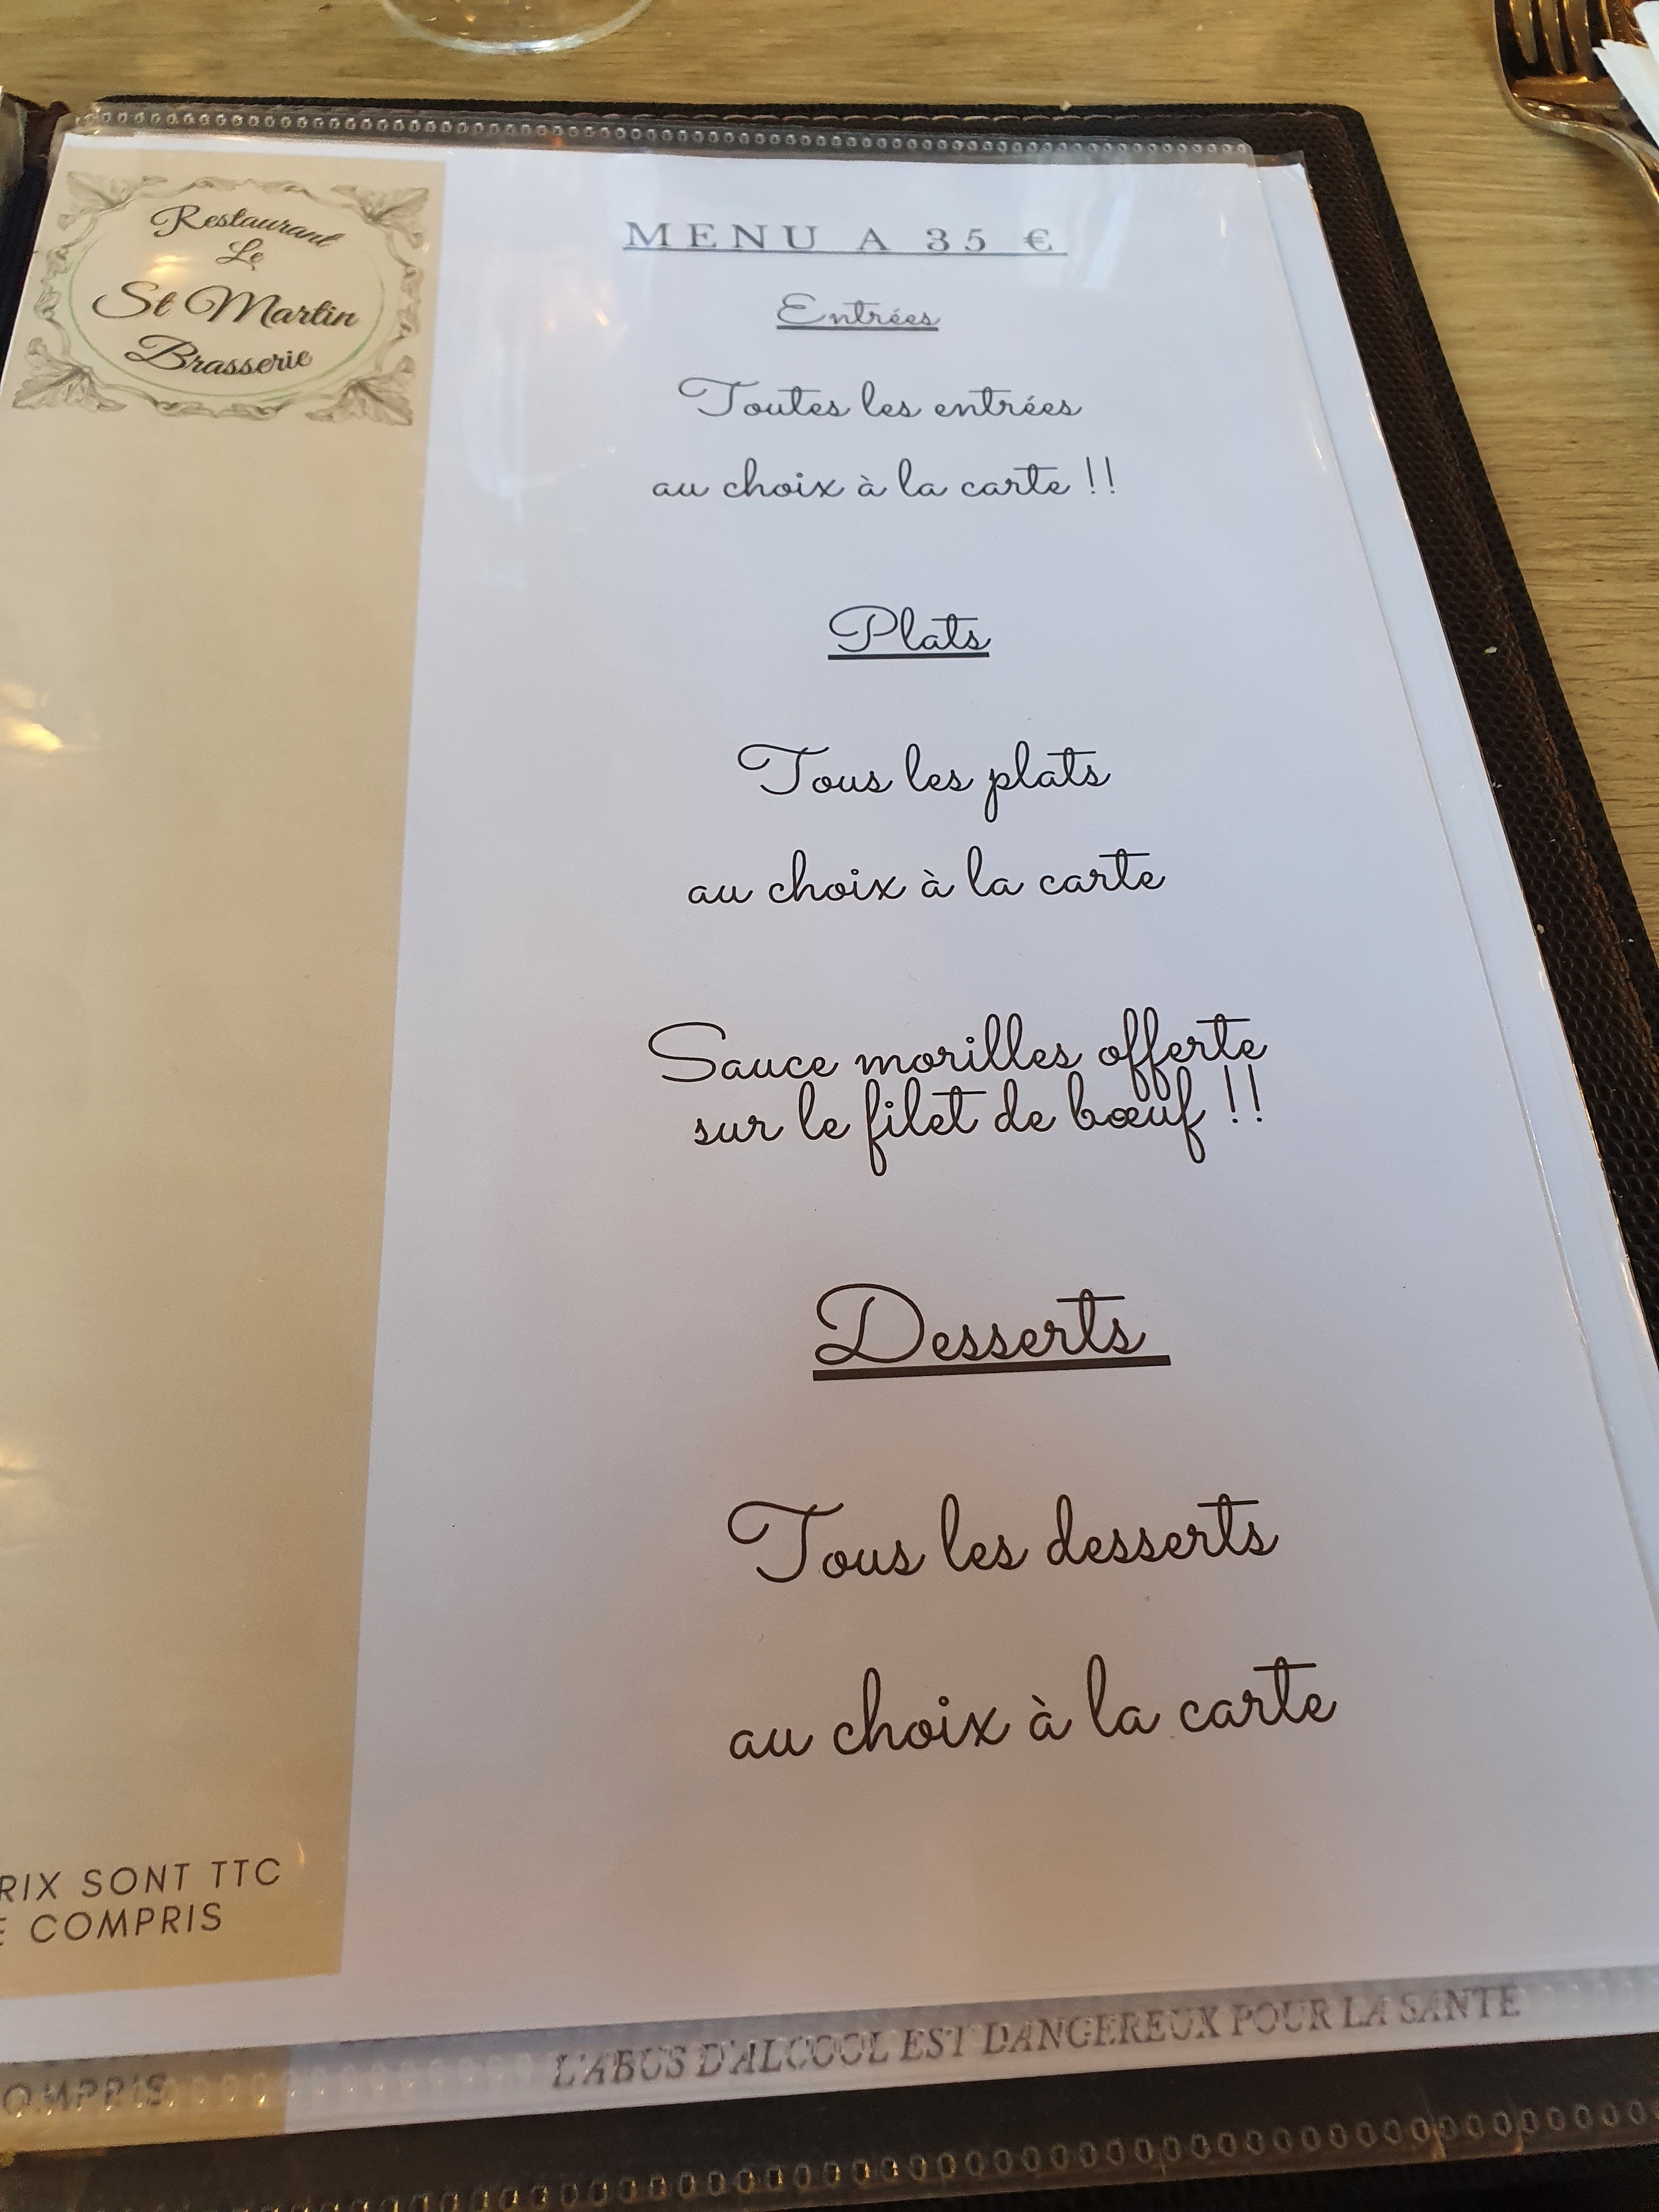 Restaurant
Le
St Martin
Brasserie
MENU A 35 €
Entrées
Toutes les entrées
au choix à la carte !!
Plats
Tous les plats
au choix à la carte
Sauce morilles offerte
sur le filet de bœuf !!
Desserts
Tous les desserts
au choix à la carte
RIX SONT TTC
E COMPRIS
L'ABUS D'ALCOOL EST DANGEREUX POUR LA SANTE
OMPRIS